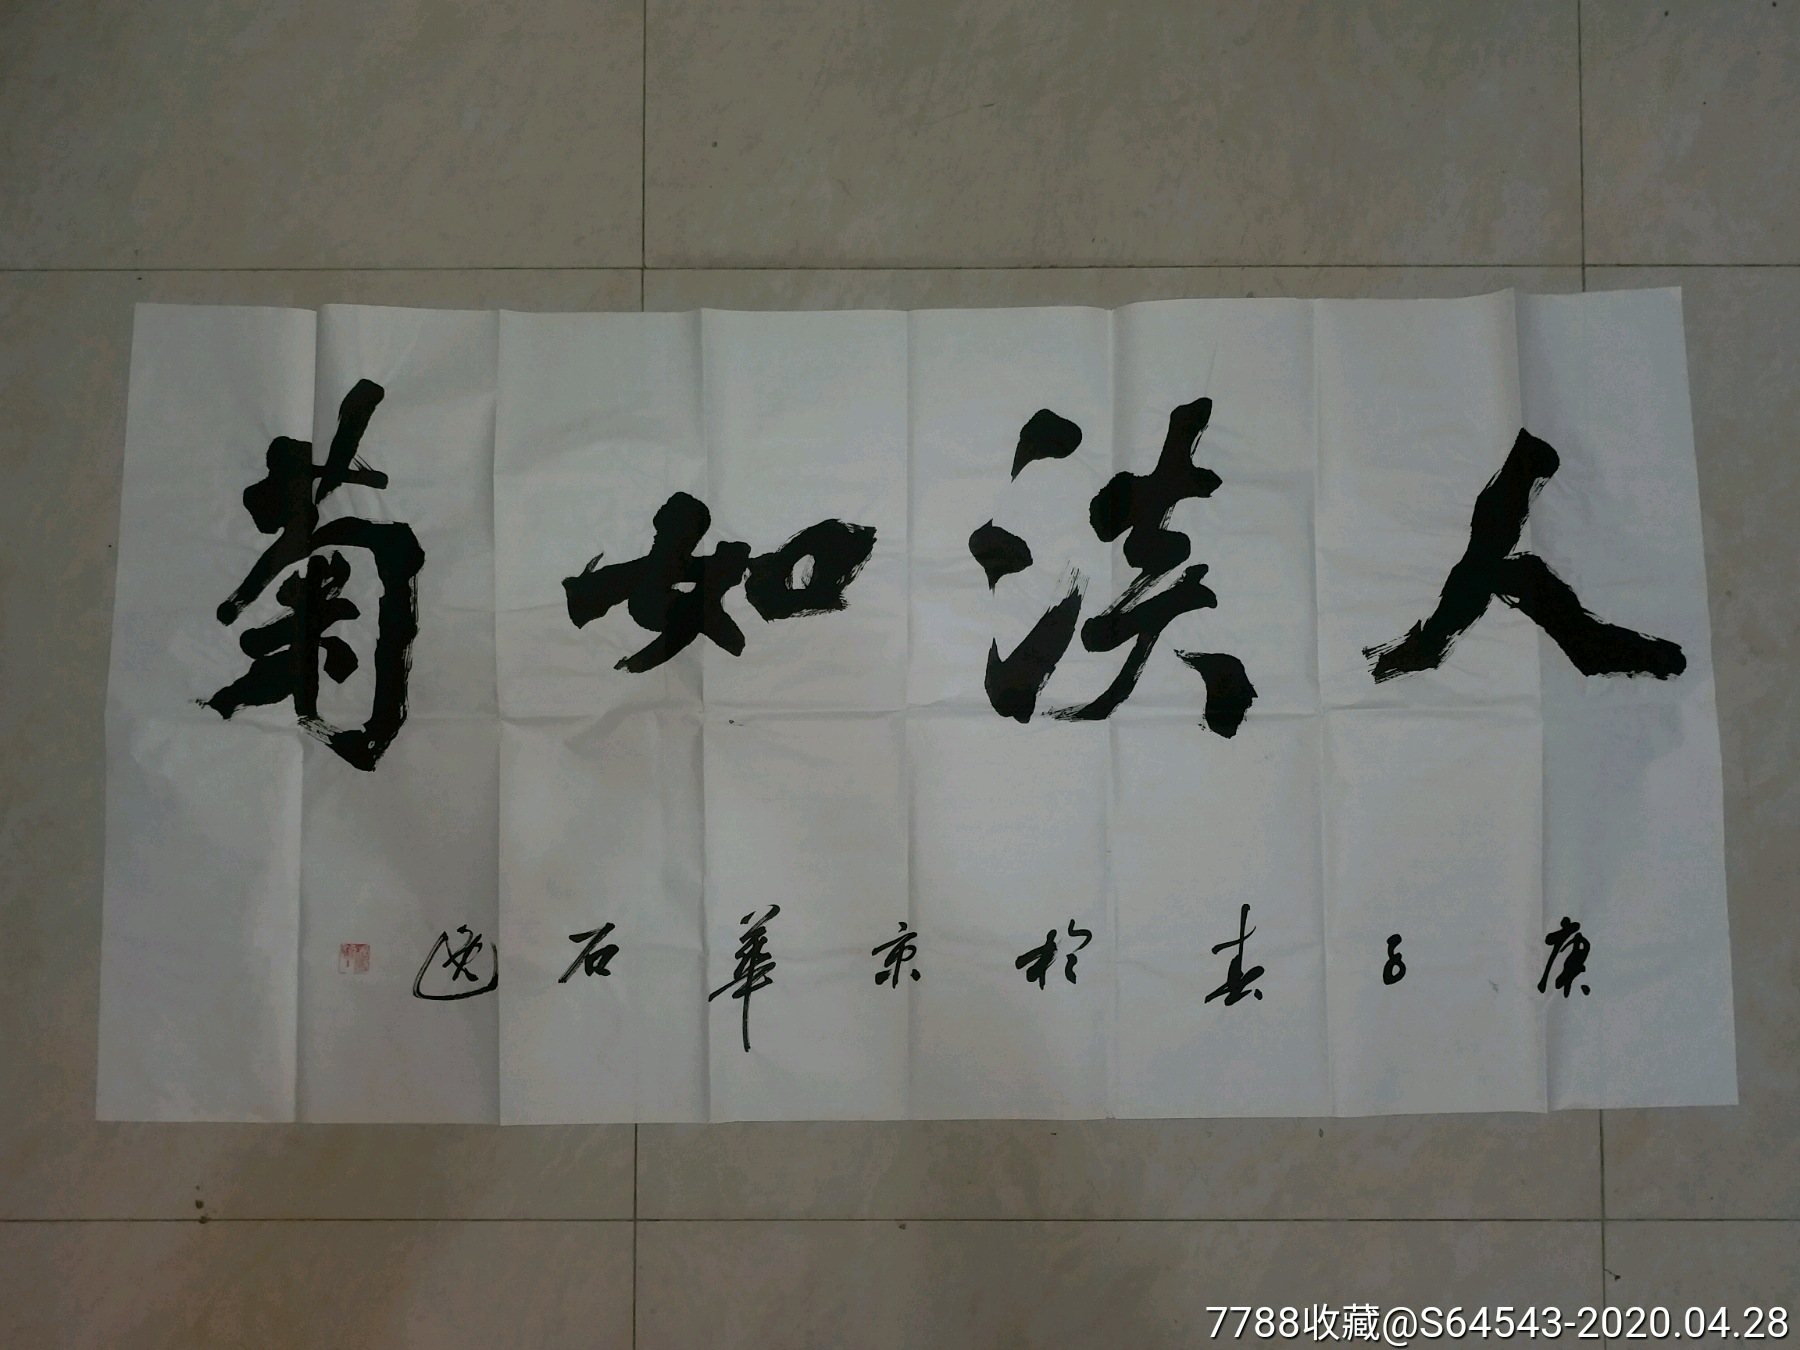 人淡如菊
庚子春於京華石逸
7788收藏@S64543-2020.04.28